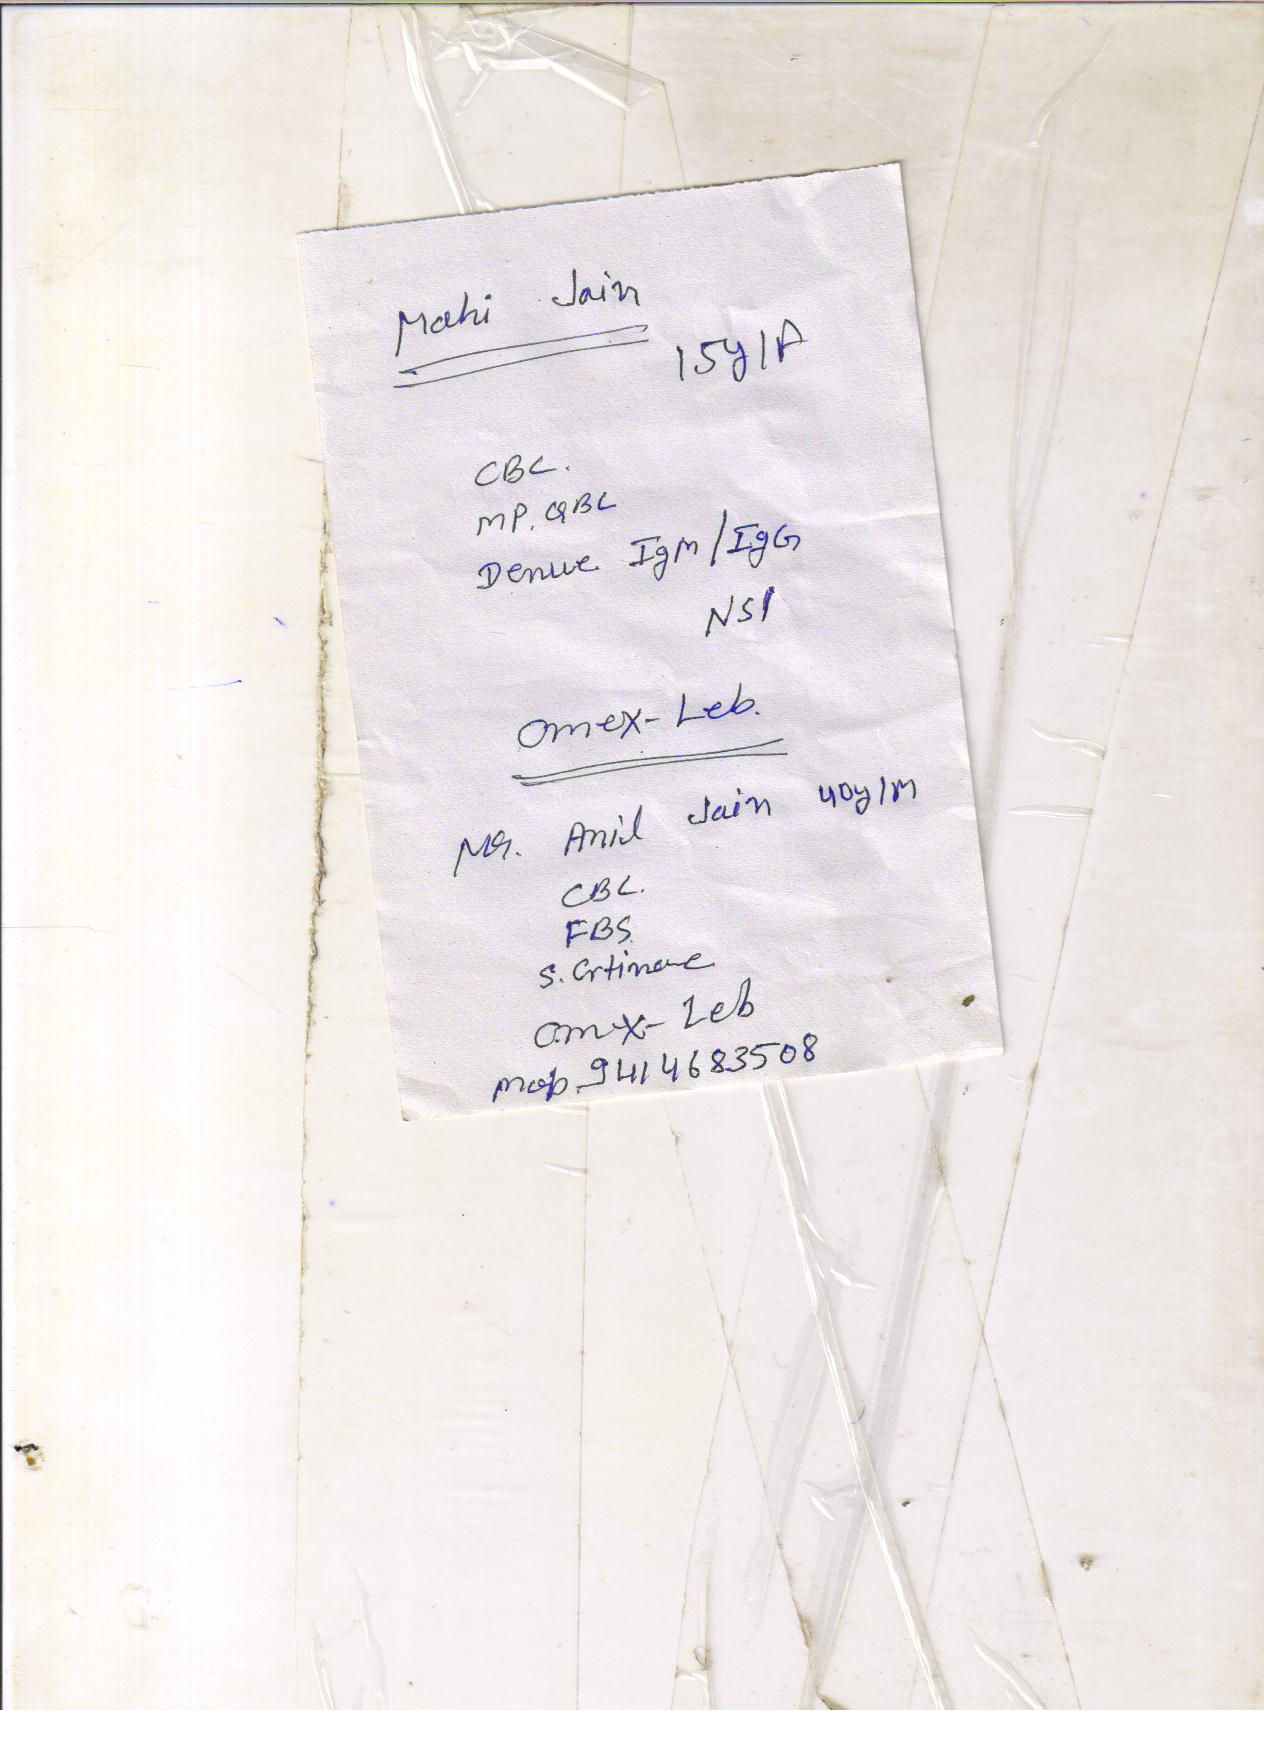 Mahi Jain
15y/F
CBC.
MP. QBC
Denue IgM/IgG
NS1
Omex-Leb.
Mr. Anil Jain 40y/M
CBC.
FBS
S. Crtinane
Omex-Leb
Mob. 9414683508